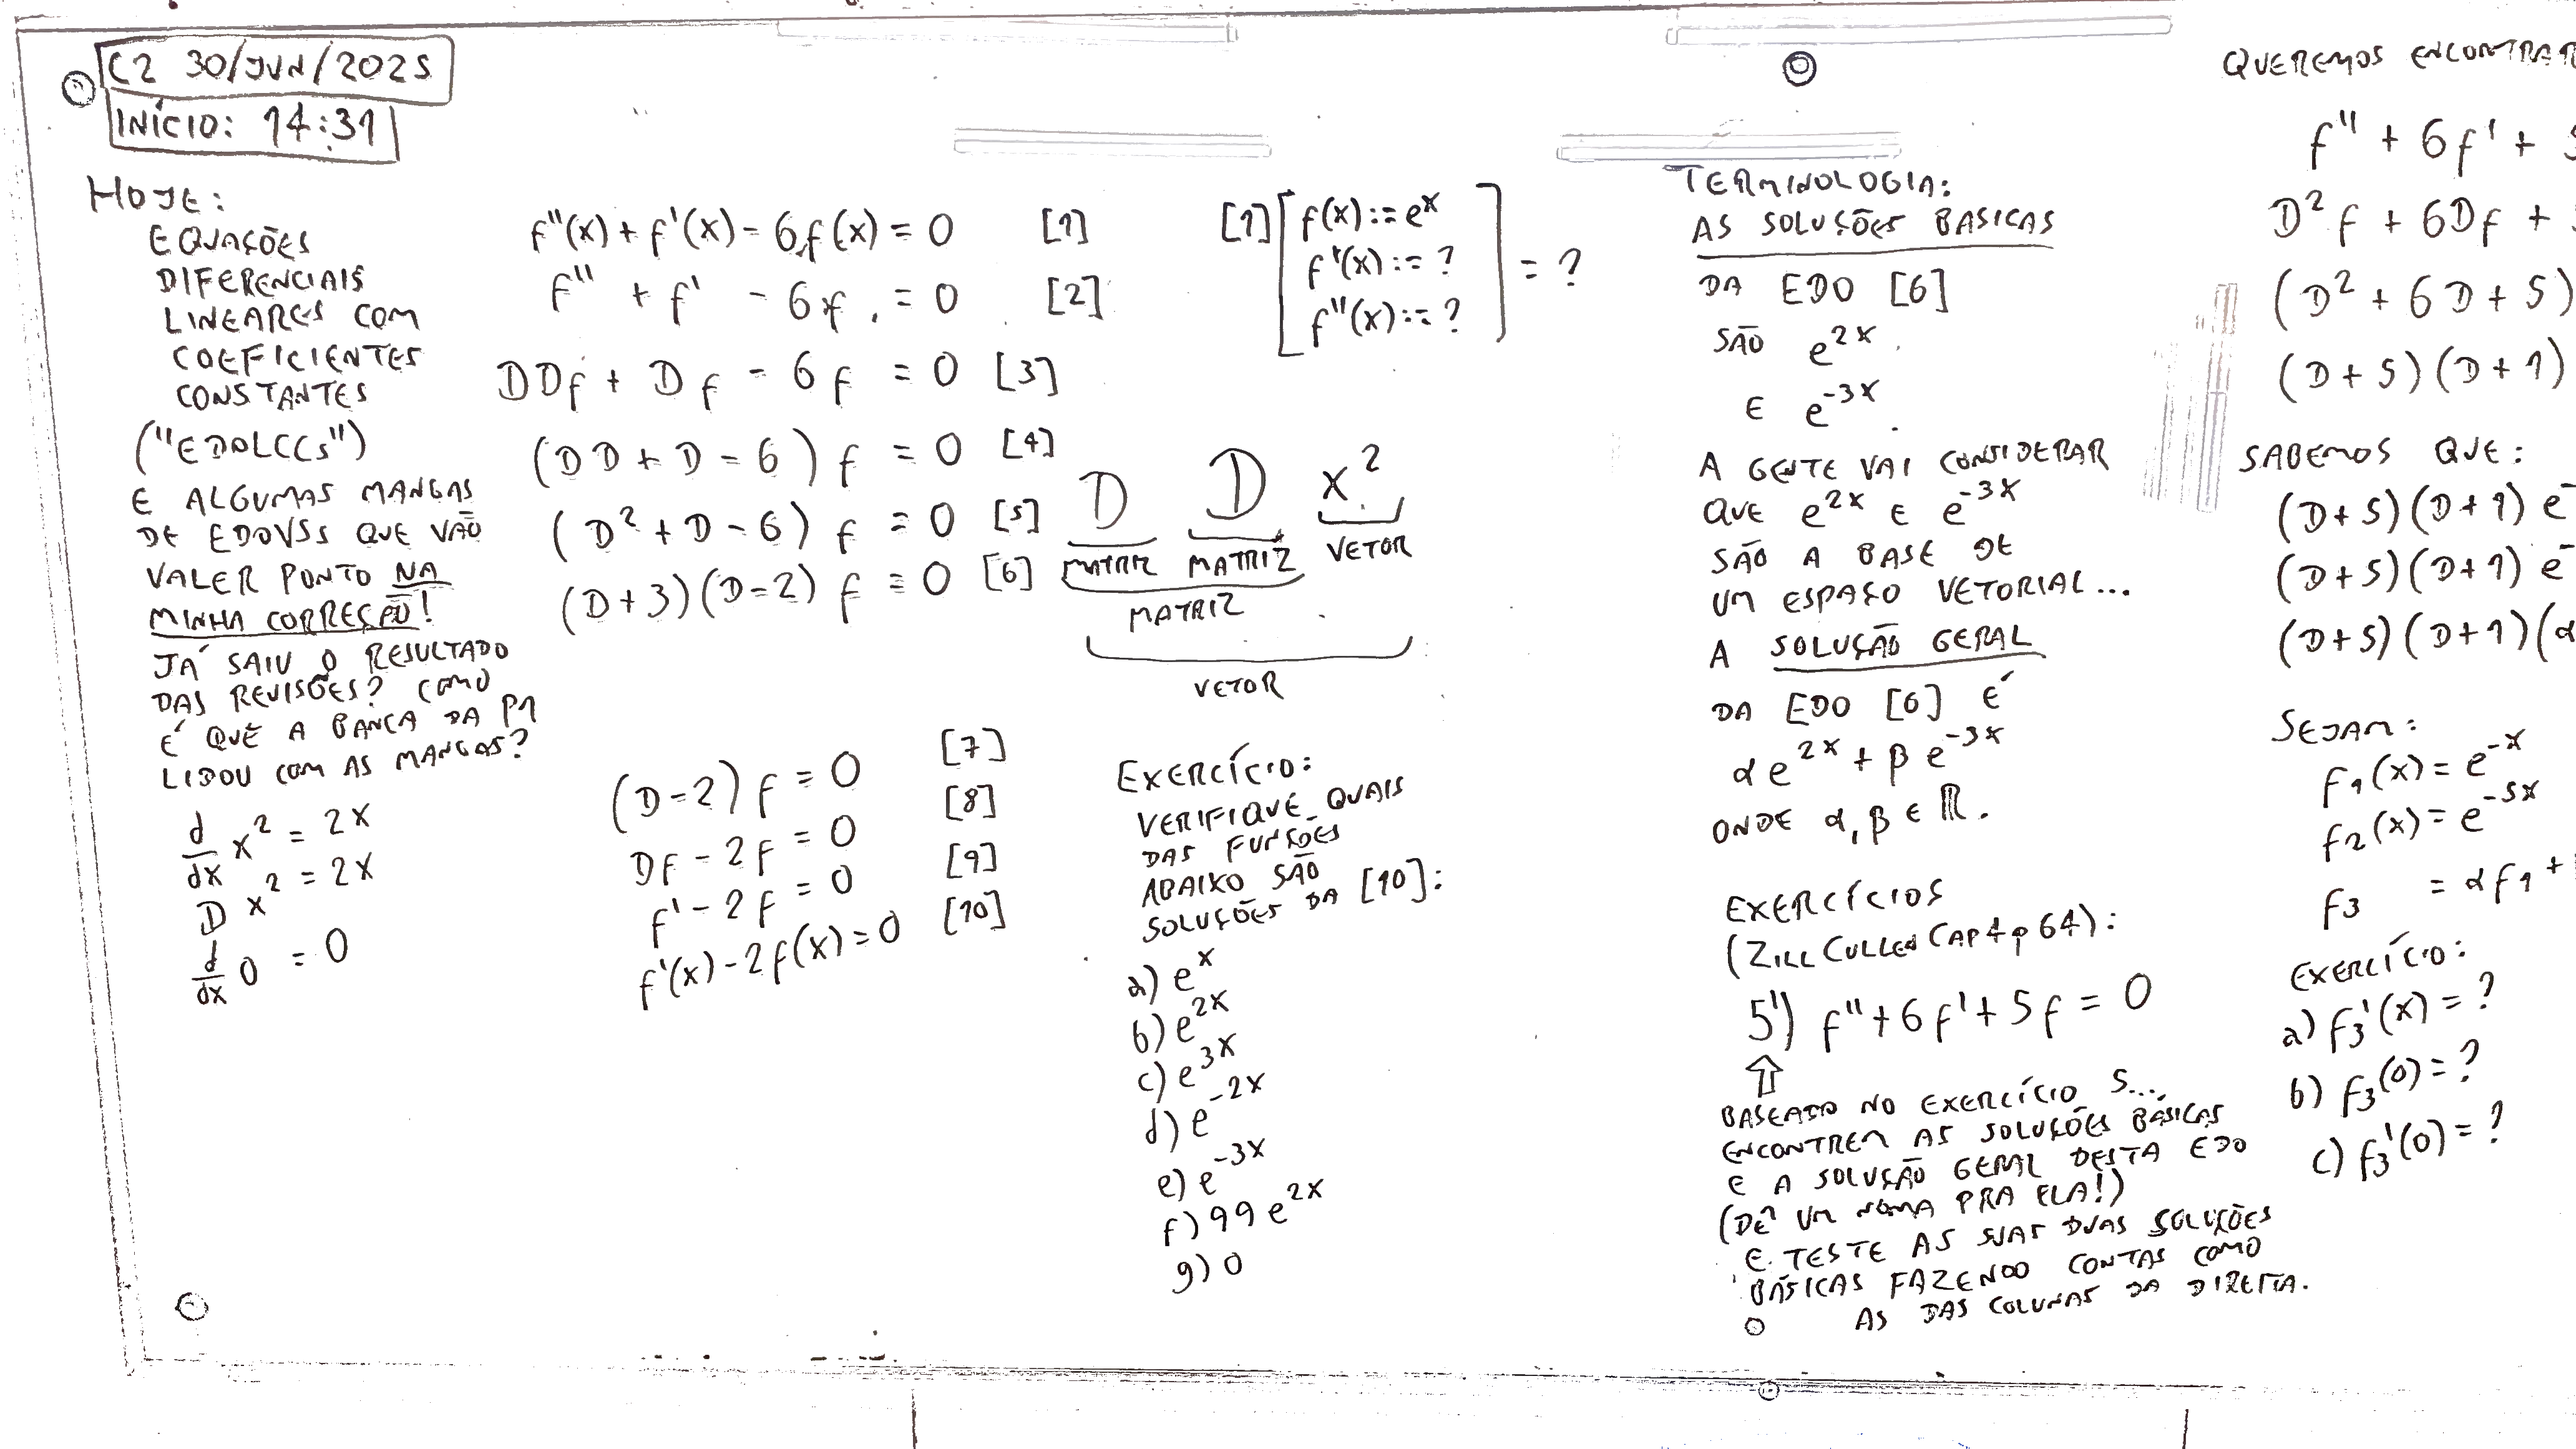 C2 30/JUN/2025
INÍCIO: 14:31
HOJE:
EQUAÇÕES
DIFERENCIAIS
LINEARES COM
COEFICIENTES
CONSTANTES
("EDOLCCs")
E ALGUMAS MANGAS
DE EDOVSs QUE VÃO
VALER PONTO NA
MINHA CORREÇÃO!
JÁ SAIU O RESULTADO
DAS REVISÕES? COMO
É QUE A BANCA DA P1
LIDOU COM AS MANGAS?
d/dx x² = 2x
D x² = 2x
d/dx 0 = 0
f''(x) + f'(x) - 6f(x) = 0 [1]
f'' + f' - 6f = 0 [2]
DDf + Df - 6f = 0 [3]
(DD + D - 6) f = 0 [4]
(D² + D - 6) f = 0 [5]
(D+3)(D-2) f = 0 [6]
(D-2) f = 0 [7]
Df - 2f = 0 [8]
f' - 2f = 0 [9]
f'(x) - 2f(x) = 0 [10]
[1] [f(x) := e^x
f'(x) := ?
f''(x) := ?] = ?
D D x²
MATRIZ MATRIZ VETOR
MATRIZ
VETOR
EXERCÍCIO:
VERIFIQUE QUAIS
DAS FUNÇÕES
ABAIXO SÃO
SOLUÇÕES DA [10]:
a) e^x
b) e^{2x}
c) e^{3x}
d) e^{-2x}
e) e^{-3x}
f) 99e^{2x}
g) 0
TERMINOLOGIA:
AS SOLUÇÕES BASICAS
DA EDO [6]
SÃO e^{2x}
E e^{-3x}.
A GENTE VAI CONSIDERAR
QUE e^{2x} E e^{-3x}
SÃO A BASE DE
UM ESPAÇO VETORIAL...
A SOLUÇÃO GERAL
DA EDO [6] É
αe^{2x} + βe^{-3x}
ONDE α, β ∈ ℝ.
EXERCÍCIOS
(ZILL CULLEN CAP4 p 64):
5') f'' + 6f' + 5f = 0
⇧
BASEADO NO EXERCÍCIO 5...
ENCONTREM AS SOLUÇÕES BÁSICAS
E A SOLUÇÃO GERAL DESTA EDO
(DÊ UM NOME PRA ELA!)
E TESTE AS SUAS DUAS SOLUÇÕES
BÁSICAS FAZENDO CONTAS COMO
AS DAS COLUNAS DA DIREITA.
QUEREMOS ENCONTRAR
f'' + 6f' +
D²f + 6Df +
(D² + 6D + 5)
(D+5)(D+1)
SABEMOS QUE:
(D+5)(D+1) e^-
(D+5)(D+1) e^-
(D+5)(D+1)(α
SEJAM:
f₁(x) = e^{-x}
f₂(x) = e^{-5x}
f₃ = αf₁ +
EXERCÍCIO:
a) f₃'(x) = ?
b) f₃(0) = ?
c) f₃'(0) = ?